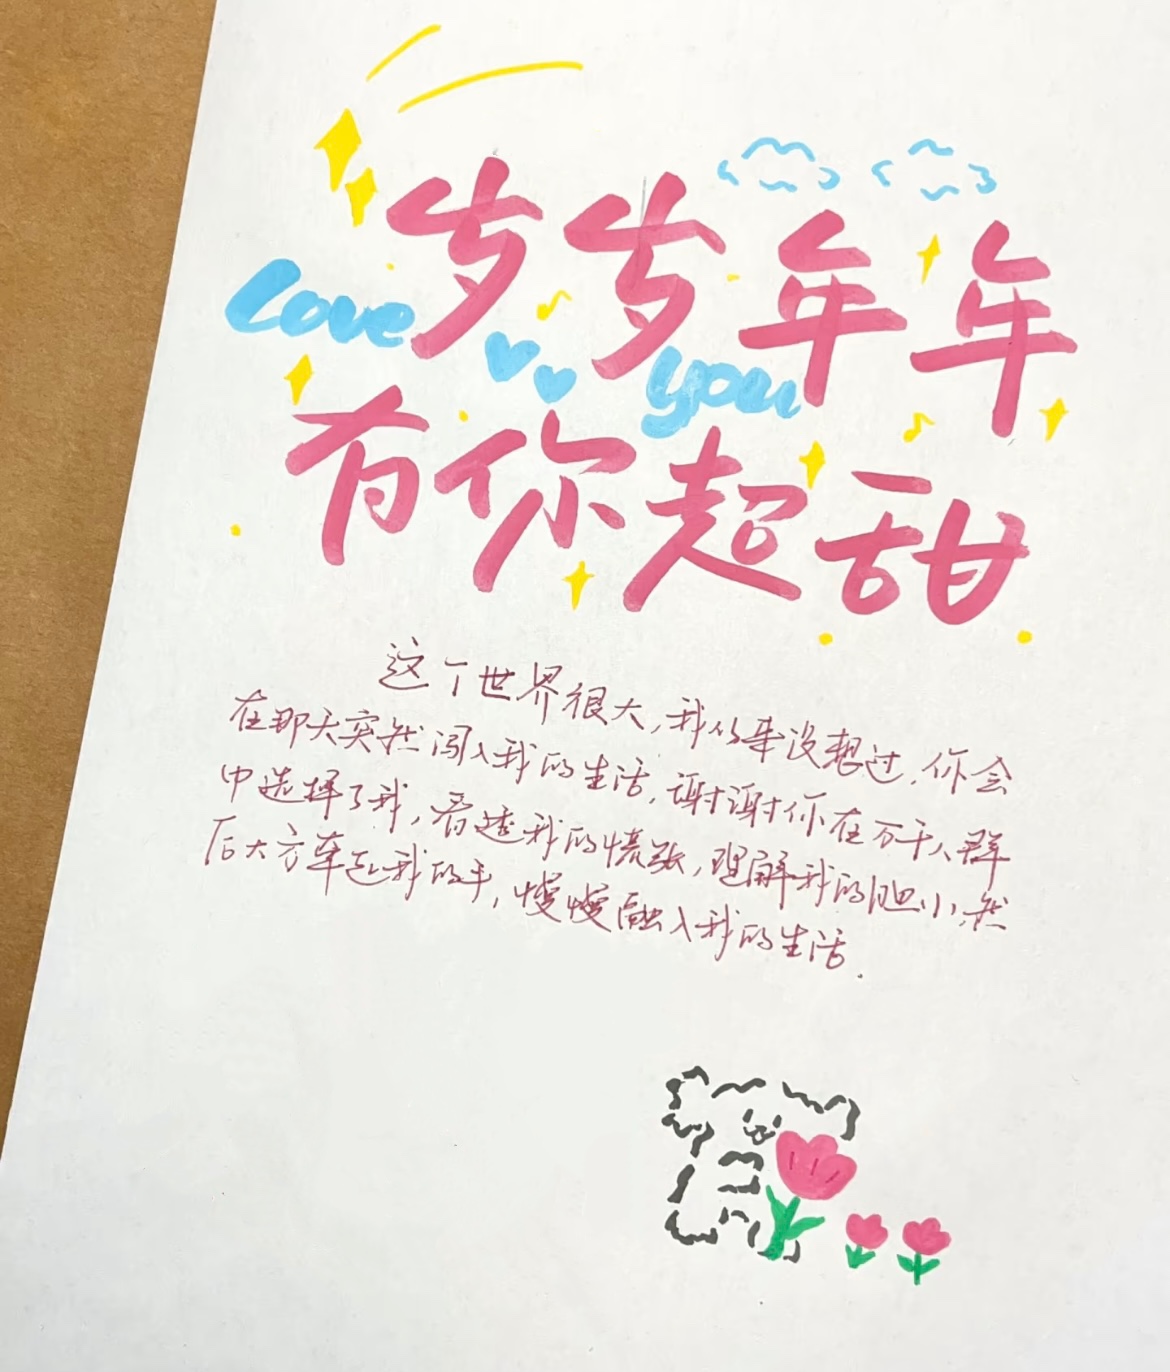 岁岁年年
Love you
有你超甜
这个世界很大,我从来没想过,你会
在那天突然闯入我的生活,谢谢你在万千人群
中选择了我,看透我的慌张,理解我的胆小,然
后大方牵起我的手,慢慢融入我的生活.